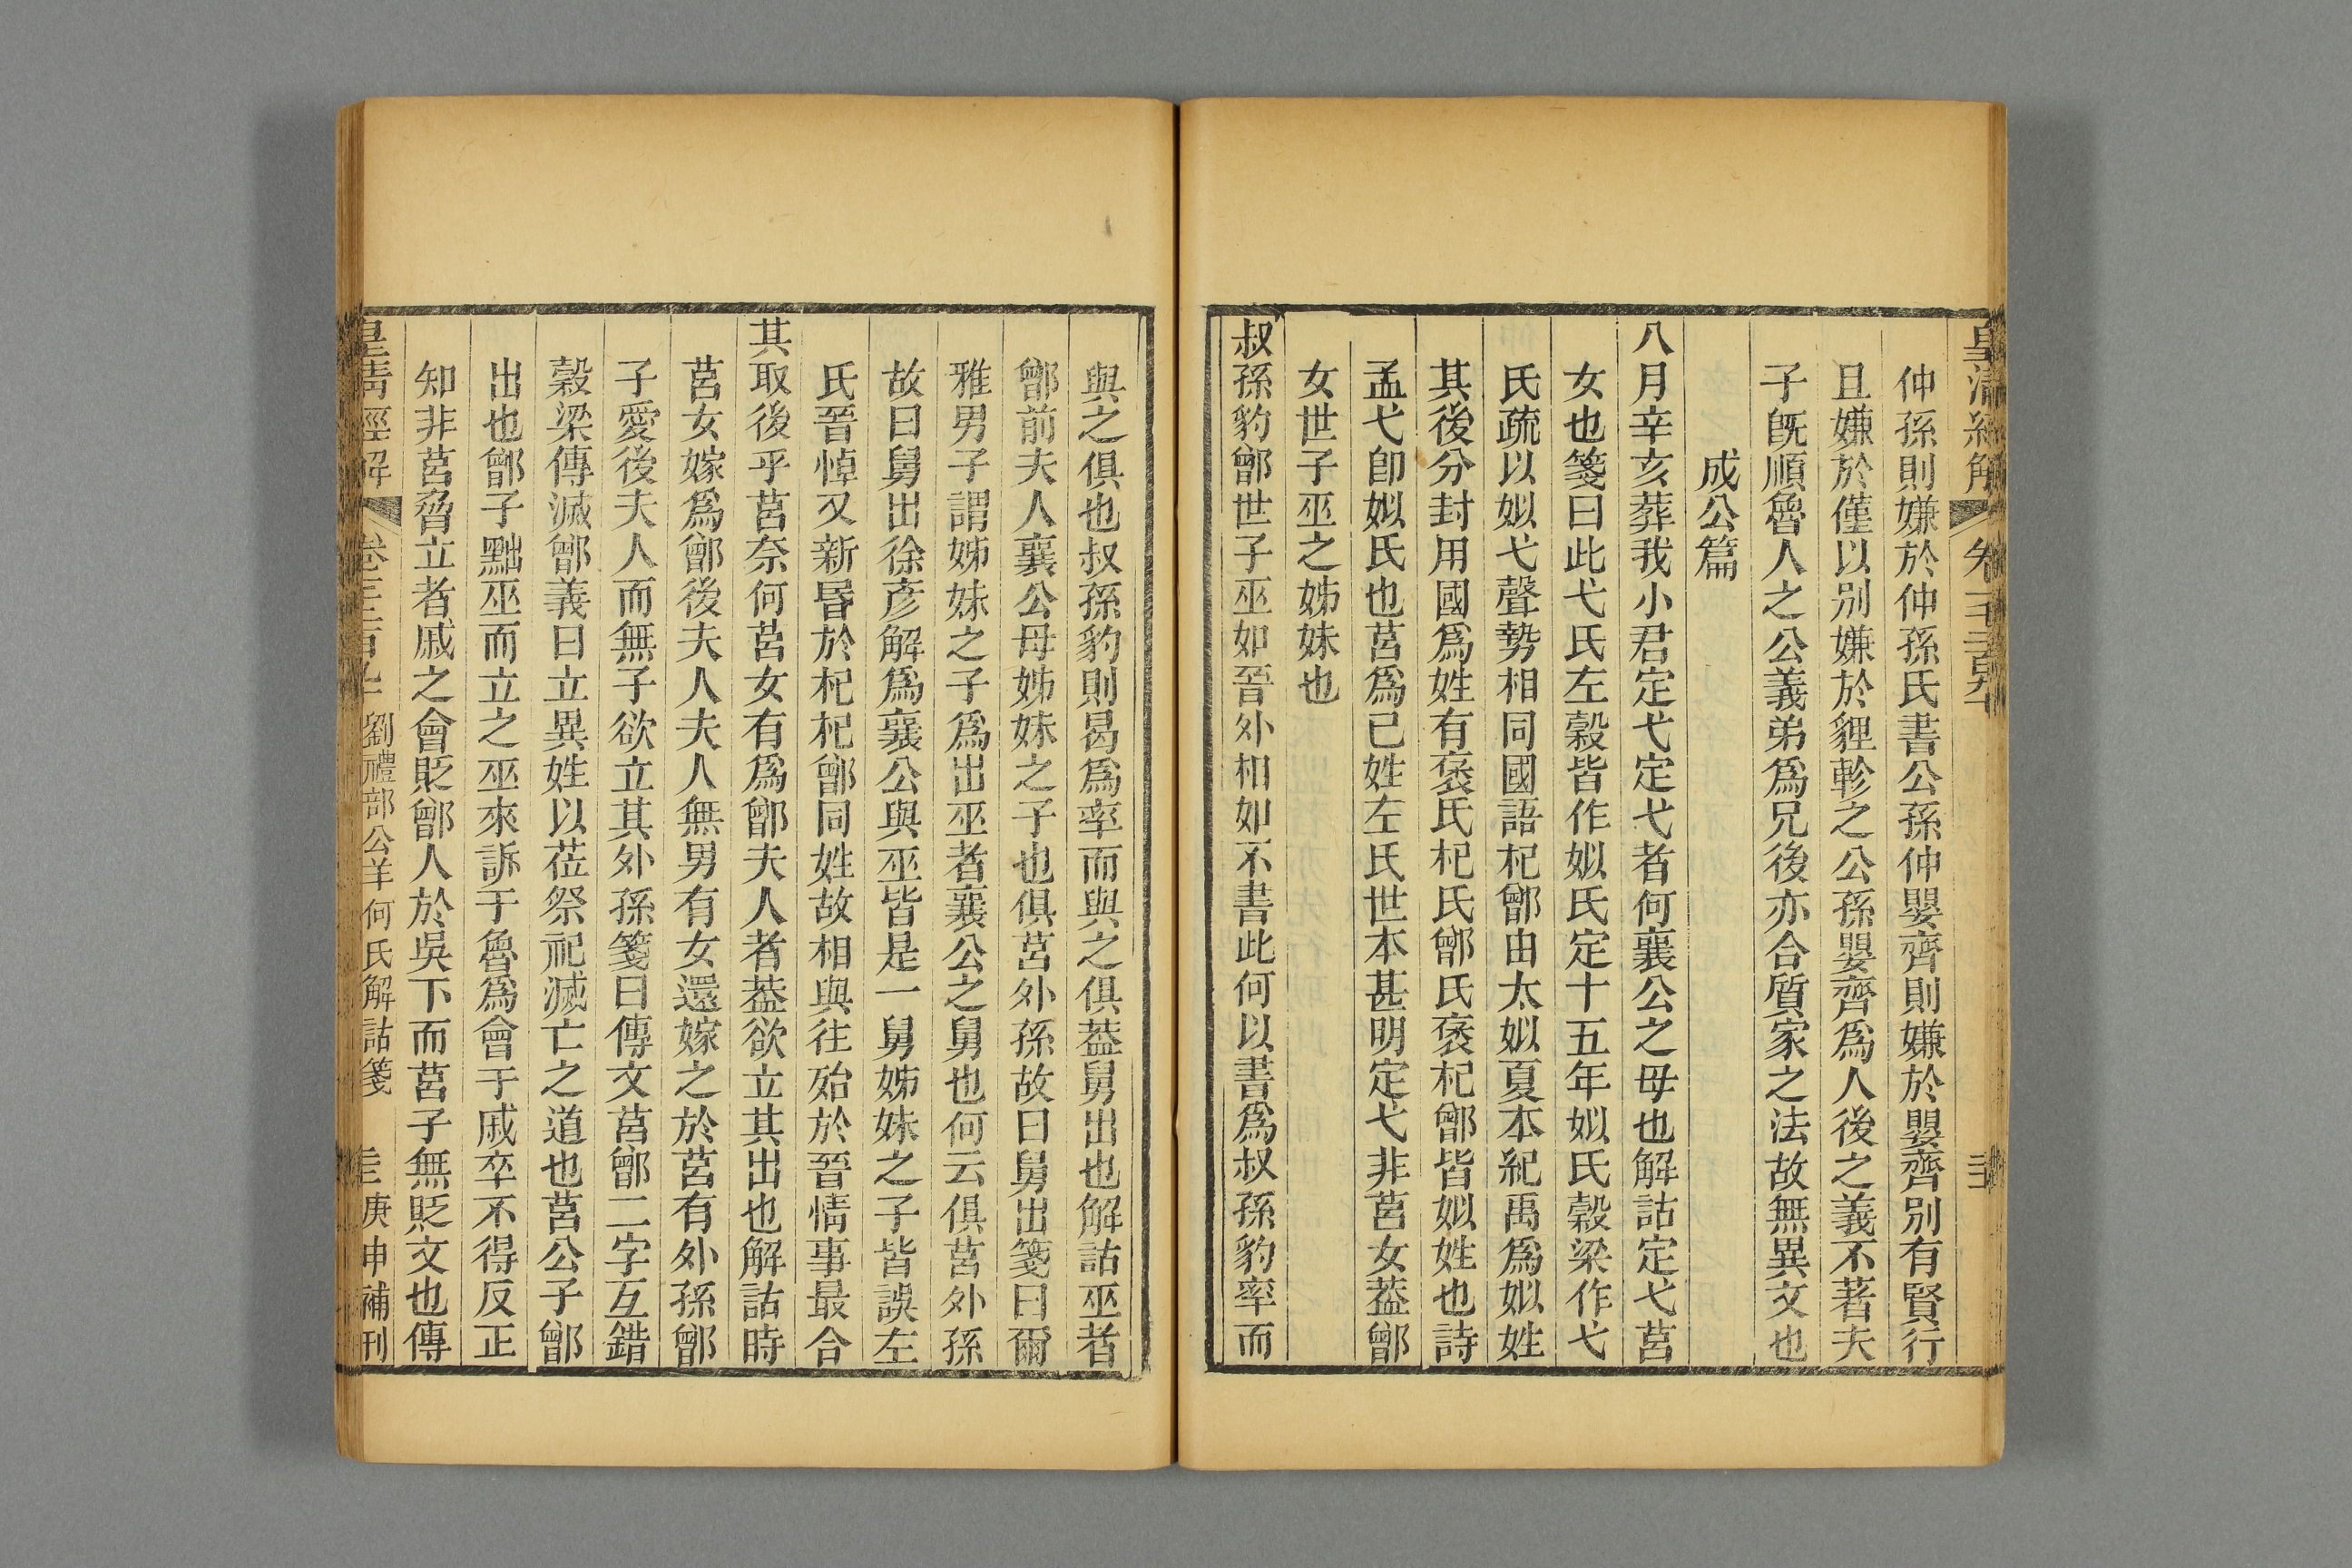 皇清經解 卷一千二百九十
仲孫則嫌於仲孫氏書公孫仲嬰齊則嫌於嬰齊別有賢行
且嫌於僅以別嫌於貍軫之公孫嬰齊爲人後之義不著夫
子旣順魯人之公義弟爲兄後亦合質家之法故無異文也
成公篇
八月辛亥葬我小君定弋定弋者何襄公之母也解詁定弋莒
女也箋曰此弋氏左穀皆作姒氏定十五年姒氏穀梁作弋
氏疏以姒弋聲勢相同國語杞鄫由太姒夏本紀禹爲姒姓
其後分封用國爲姓有褒氏杞氏鄫氏褒杞鄫皆姒姓也詩
孟弋卽姒氏也莒爲已姓左氏世本甚明定弋非莒女葢鄫
女世子巫之姊妹也
叔孫豹鄫世子巫如晉外相如不書此何以書爲叔孫豹率而
與之俱也叔孫豹則曷爲率而與之俱葢舅出也解詁巫者
鄫前夫人襄公母姊妹之子也俱莒外孫故曰舅出箋曰爾
雅男子謂姊妹之子爲出巫者襄公之舅也何云俱莒外孫
故曰舅出徐彥解爲襄公與巫皆是一舅姊妹之子皆誤左
氏晉悼又新昏於杞杞鄫同姓故相與往殆於晉情事最合
其取後乎莒奈何莒女有爲鄫夫人者葢欲立其出也解詁時
莒女嫁爲鄫後夫人夫人無男有女還嫁之於莒有外孫鄫
子愛後夫人而無子欲立其外孫箋曰傳文莒鄫二字互錯
穀梁傳滅鄫義曰立異姓以莅祭祀滅亡之道也莒公子鄫
出也鄫子黜巫而立之巫來訴于魯爲會于戚卒不得反正
知非莒脅立者戚之會貶鄫人於吳下而莒子無貶文也傳
皇清經解 劉禮部公羊何氏解詁箋 庚申補刊